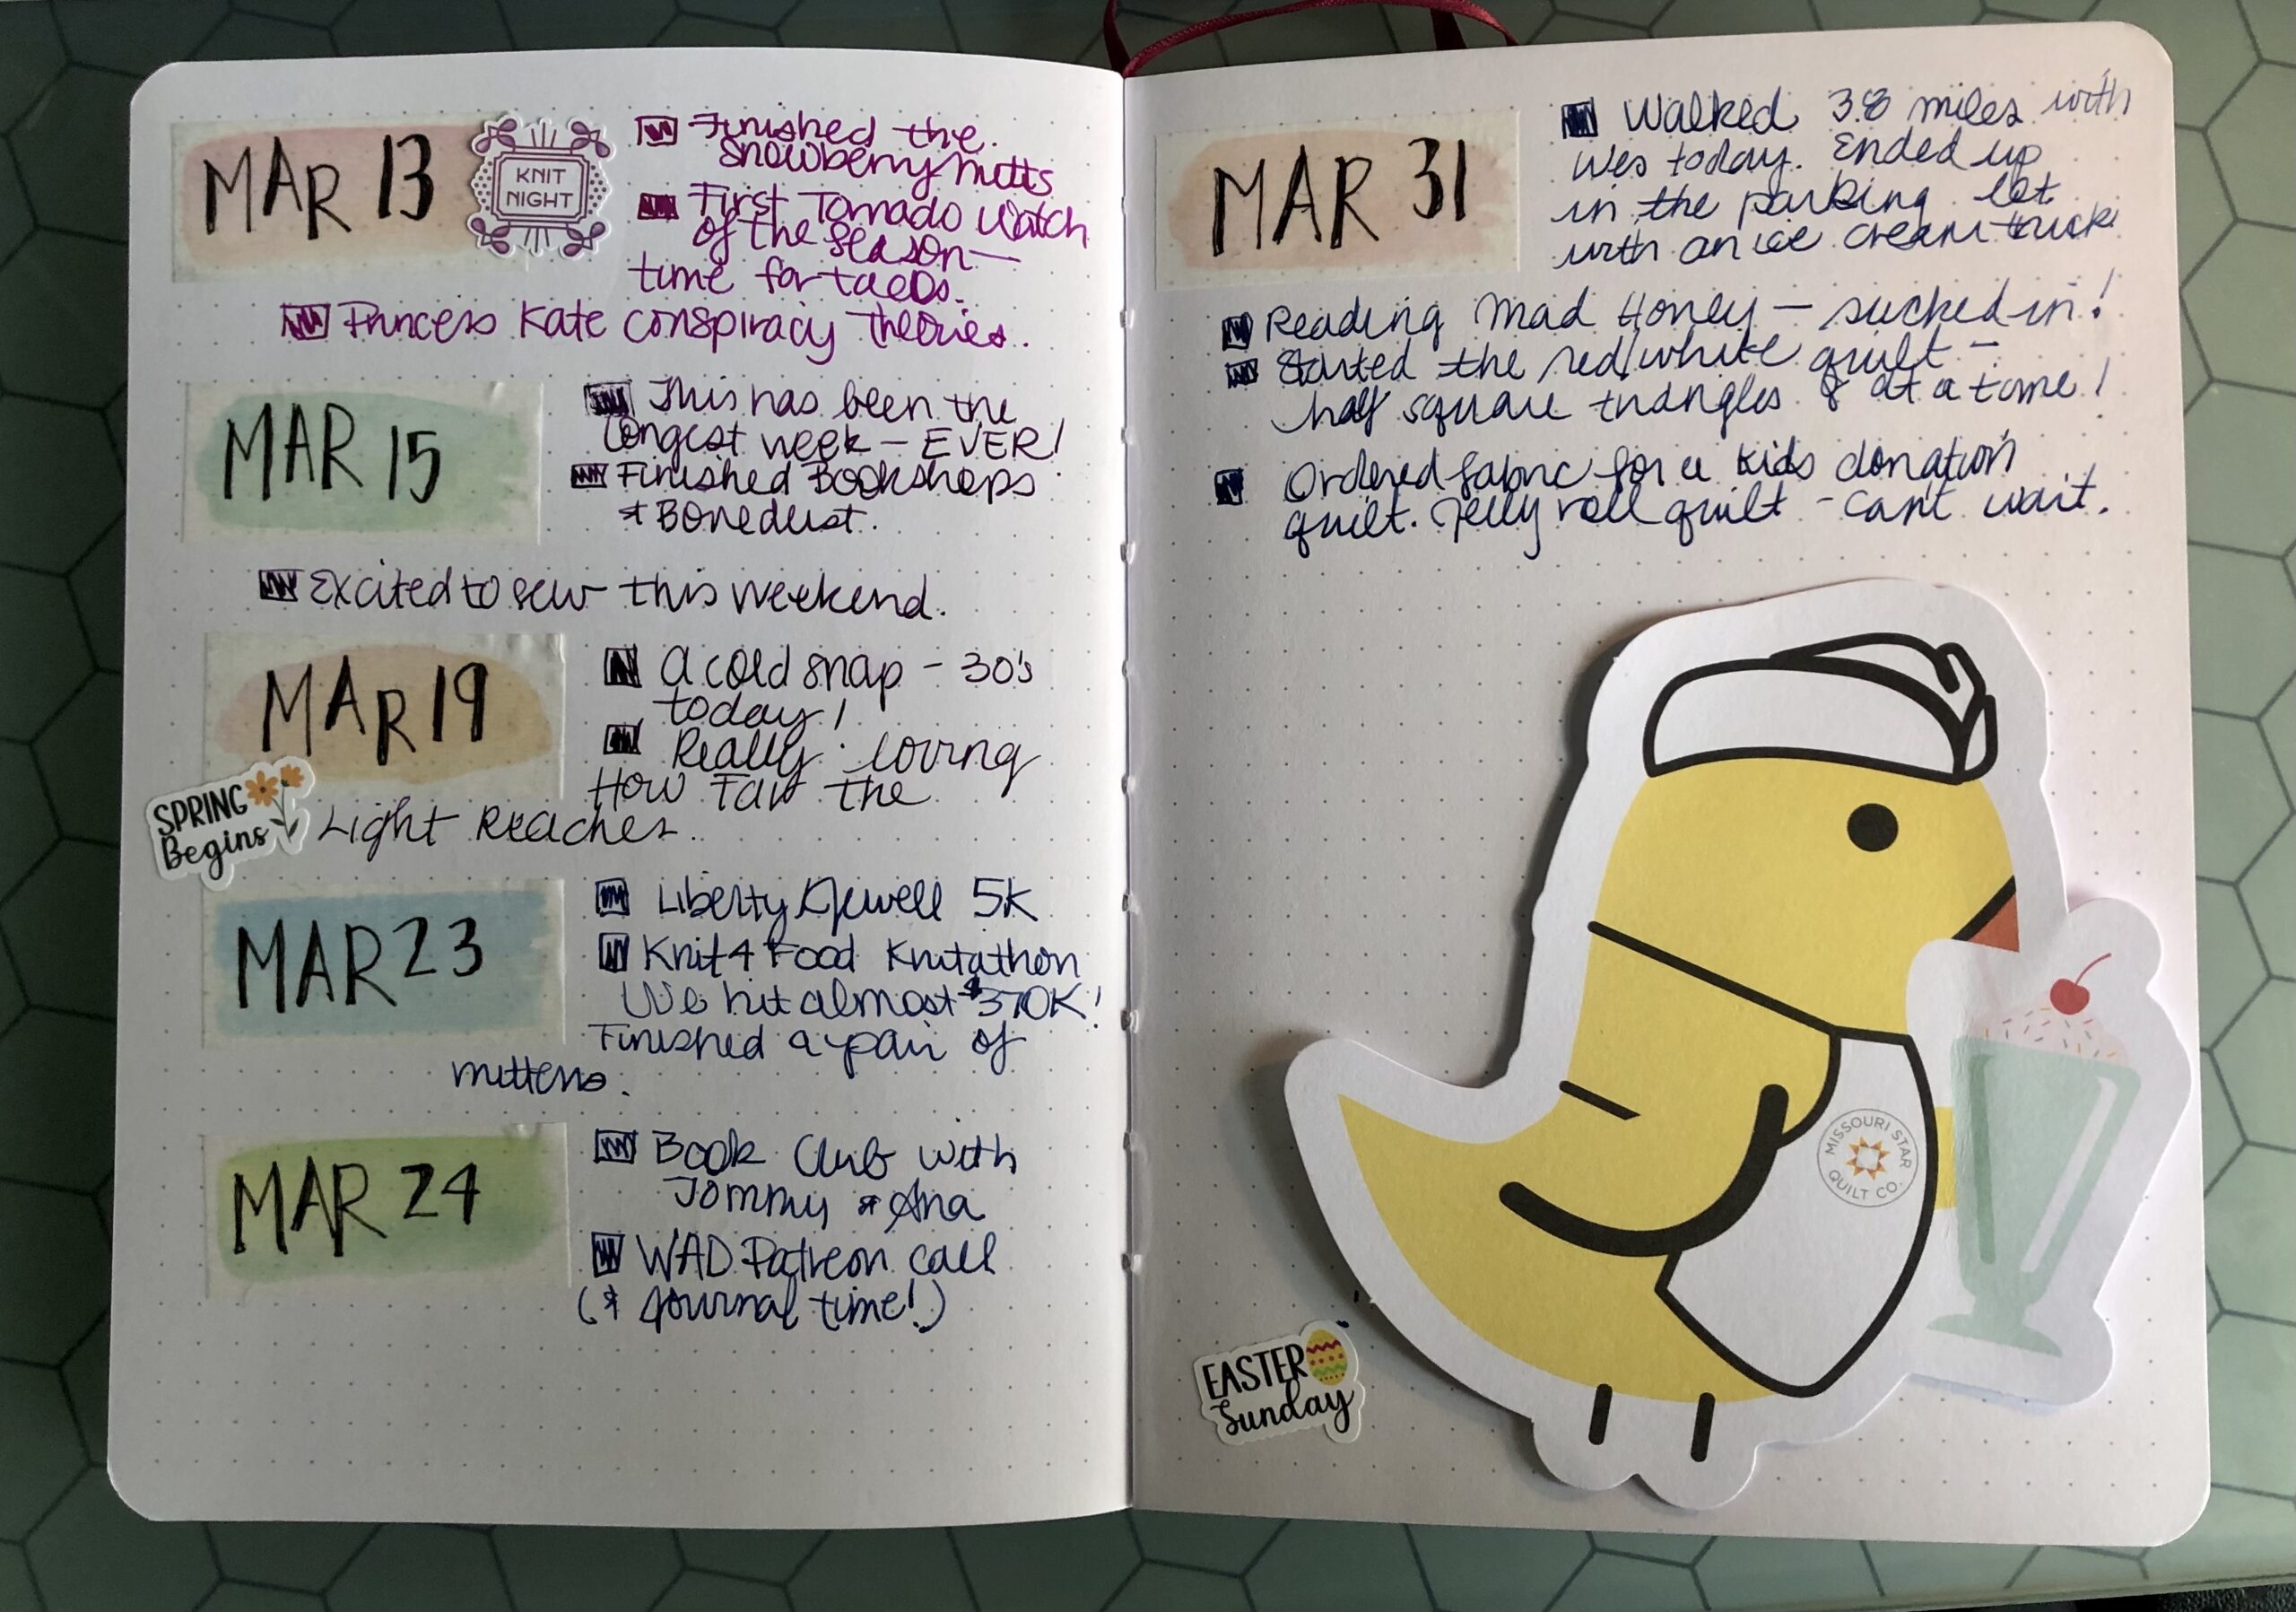 MAR 13
KNIT
NIGHT
Finished the
Snowberry Mitts
First Tornado Watch
of the season—
time for tacos.
Princess Kate conspiracy theories.
MAR 15
This has been the
longest week – EVER!
Finished Bookshops
& Bonedust.
Excited to sew this weekend.
MAR 19
A cold snap – 30's
today!
Really loving
How Far the
Light Reaches.
SPRING
Begins
MAR 23
Liberty Jewell 5K
Knit 4 Food Knitathon
We hit almost $370K!
Finished a pair of
mittens.
MAR 24
Book Club with
Tommy & Ana
WAD Patreon call
(& journal time!)
MAR 31
Walked 3.8 miles with
Wes today. Ended up
in the parking lot
with an ice cream truck
Reading Mad Honey – sucked in!
Started the red/white quilt –
half square triangles 8 at a time!
Ordered fabric for a kids donation
quilt. Jelly roll quilt – can't wait.
MISSOURI STAR
QUILT CO.
EASTER
Sunday